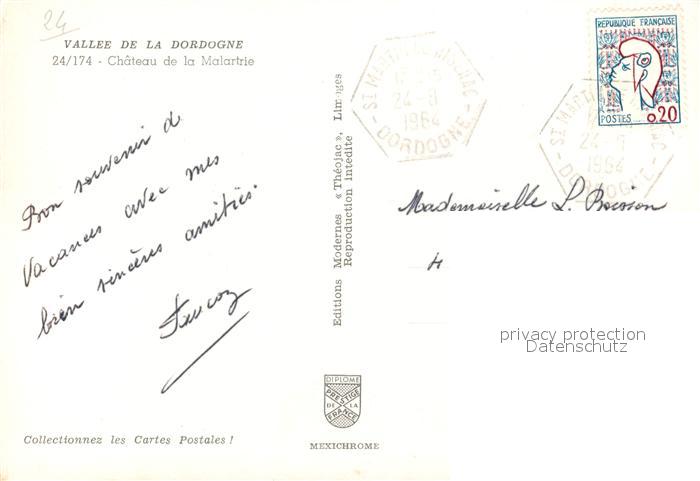 24
VALLEE DE LA DORDOGNE
24/174 - Château de la Malartrie
Bon souvenir de
Vacances avec mes
bien sincères amitiés.
Editions Modernes « Théojac », Limoges
Reproduction interdite
DIPLOME
PRESTIGE
DE LA
FRANCE
MEXICHROME
Collectionnez les Cartes Postales !
ST MARTIAL
24-8
1964
DORDOGNE
REPUBLIQUE FRANÇAISE
POSTES
0,20
ST MARTIAL
1964
DORDOGNE
Mademoiselle L.
privacy protection
Datenschutz